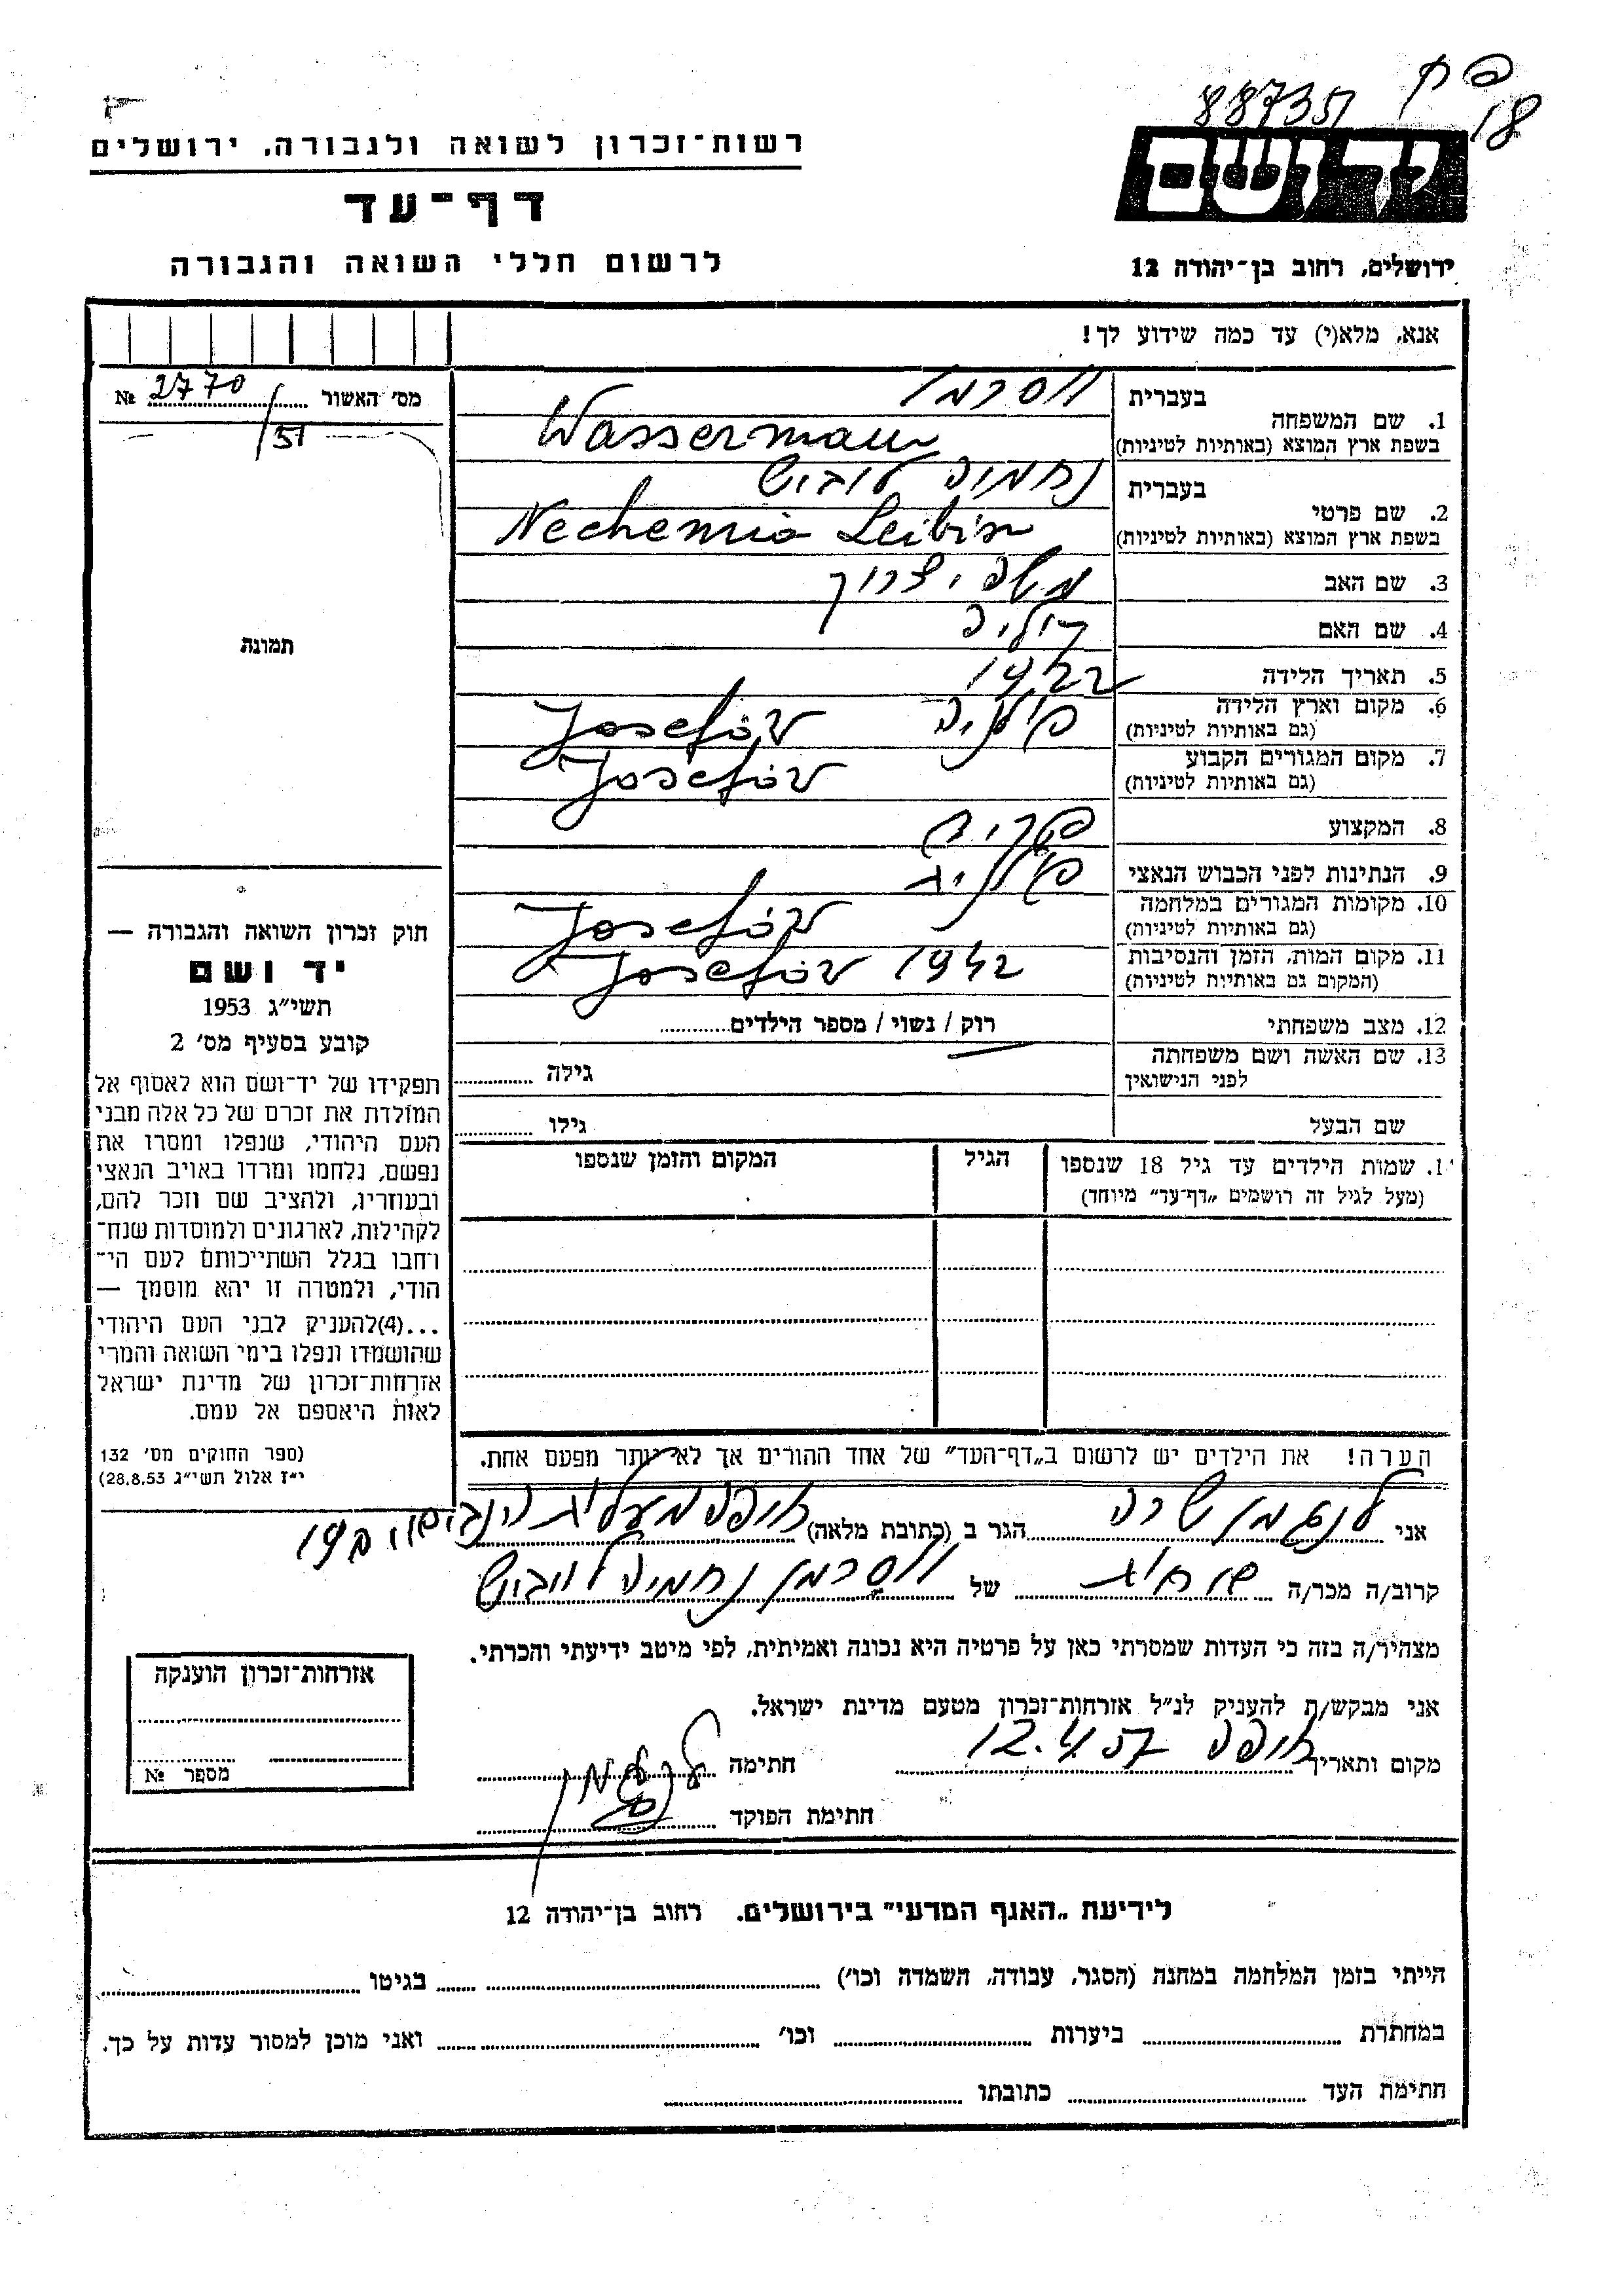 פ ח
18
88735
רשות־זכרון לשואה ולגבורה, ירושלים
דף־עד
לרשום חללי השואה והגבורה
יד ושם
ירושלים, רחוב בן־יהודה 12
אנא, מלא(י) עד כמה שידוע לך!
מס' האשור 2770 №
/51
תמונה
1. שם המשפחה
בעברית וסרמן
בשפת ארץ המוצא (באותיות לטיניות) Wassermann
2. שם פרטי
בעברית נחמיה לוביש
בשפת ארץ המוצא (באותיות לטיניות) Nechemia Leibisn
3. שם האב משה יצחק
4. שם האם
5. תאריך הלידה 1922
6. מקום וארץ הלידה פולניה Josefóv
(גם באותיות לטיניות)
7. מקום המגורים הקבוע Josefóv
(גם באותיות לטיניות)
8. המקצוע
9. הנתינות לפני הכבוש הנאצי פולנית
10. מקומות המגורים במלחמה Josefóv
(גם באותיות לטיניות)
11. מקום המות, הזמן והנסיבות Josefóv 1942
(המקום גם באותיות לטיניות)
12. מצב משפחתי רוק / נשוי / מספר הילדים
13. שם האשה ושם משפחתה גילה
לפני הנישואין
שם הבעל גילו
1. שמות הילדים עד גיל 18 שנספו הגיל המקום והזמן שנספו
(מעל לגיל זה רושמים „דף־עד” מיוחד)
חוק זכרון השואה והגבורה —
יד ושם
תשי״ג 1953
קובע בסעיף מס' 2
תפקידו של יד־ושם הוא לאסוף אל
המולדת את זכרם של כל אלה מבני
העם היהודי, שנפלו ומסרו את
נפשם, נלחמו ומרדו באויב הנאצי
ובעוזריו, ולהציב שם וזכר להם,
לקהילות, לארגונים ולמוסדות שנח־
רחבו בגלל השתייכותם לעם הי־
הודי, ולמטרה זו יהא מוסמך —
...(4)להעניק לבני העם היהודי
שהושמדו ונפלו בימי השואה והמרי
אזרחות־זכרון של מדינת ישראל
לאות היאספם אל עמם.
(ספר החוקים מס' 132
י״ז אלול תשי״ג 28.8.53)
הערה! את הילדים יש לרשום ב„דף־העד” של אחד ההורים אך לא יותר מפעם אחת.
אני לנגמן שרה הגר ב (כתובת מלאה) חיפה
קרוב/ה מכר/ה של וסרמן נחמיה לייביש
מצהיר/ה בזה כי העדות שמסרתי כאן על פרטיה היא נכונה ואמיתית, לפי מיטב ידיעתי והכרתי.
אני מבקש/ת להעניק לנ״ל אזרחות־זכרון מטעם מדינת ישראל.
מקום ותאריך חיפה 12.4.57 חתימה
חתימת הפוקד
אזרחות־זכרון הוענקה
מספר №
לידיעת „האגף המדעי” בירושלים. רחוב בן־יהודה 12
הייתי בזמן המלחמה במחנה (הסגר, עבודה, השמדה וכו') בגיטו
במחתרת ביערות וכו' ואני מוכן למסור עדות על כך.
חתימת העד כתובתו